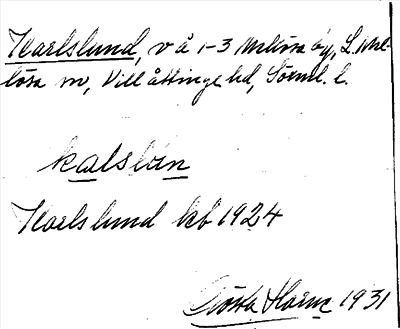 Karlslund, v å 1-3 Mellösa by, L. Mel-
lösa sn, Villåttinge hd, Söml. l.
kalslun
Karlslund kb 1924
Gösta Harne 1931